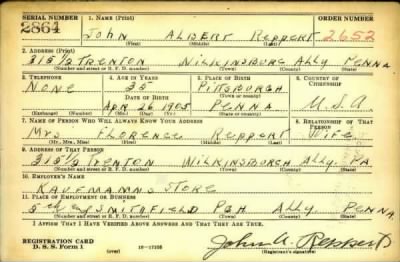 SERIAL NUMBER 1. NAME (Print) ORDER NUMBER
2864 JOHN ALBERT REPPERT 2652
(First) (Middle) (Last)
2. ADDRESS (Print)
315 1/2 TRENTON WILKINSBURG ALLY. PENNA
(Number and street or R. F. D. number) (Town) (County) (State)
3. TELEPHONE 4. AGE IN YEARS 5. PLACE OF BIRTH 6. COUNTRY OF CITIZENSHIP
NONE 35 PITTSBURGH
DATE OF BIRTH (Town or county)
APR 26 1905 PENNA U.S.A.
(Mo.) (Day) (Yr.) (State or country)
7. NAME OF PERSON WHO WILL ALWAYS KNOW YOUR ADDRESS 8. RELATIONSHIP OF THAT PERSON
MRS FLORENCE REPPERT WIFE
(Mr., Mrs., Miss) (First) (Middle) (Last)
9. ADDRESS OF THAT PERSON
315 1/2 TRENTON WILKINSBURGH ALLY. PA
(Number and street or R. F. D. number) (Town) (County) (State)
10. EMPLOYER'S NAME
KAUFMANNS STORE
11. PLACE OF EMPLOYMENT OR BUSINESS
5th & SMITHFIELD PGH ALLY. PENNA.
(Number and street or R. F. D. number) (Town) (County) (State)
I AFFIRM THAT I HAVE VERIFIED ABOVE ANSWERS AND THAT THEY ARE TRUE.
REGISTRATION CARD
D. S. S. Form 1 (over) 16-17105 John A. Reppert